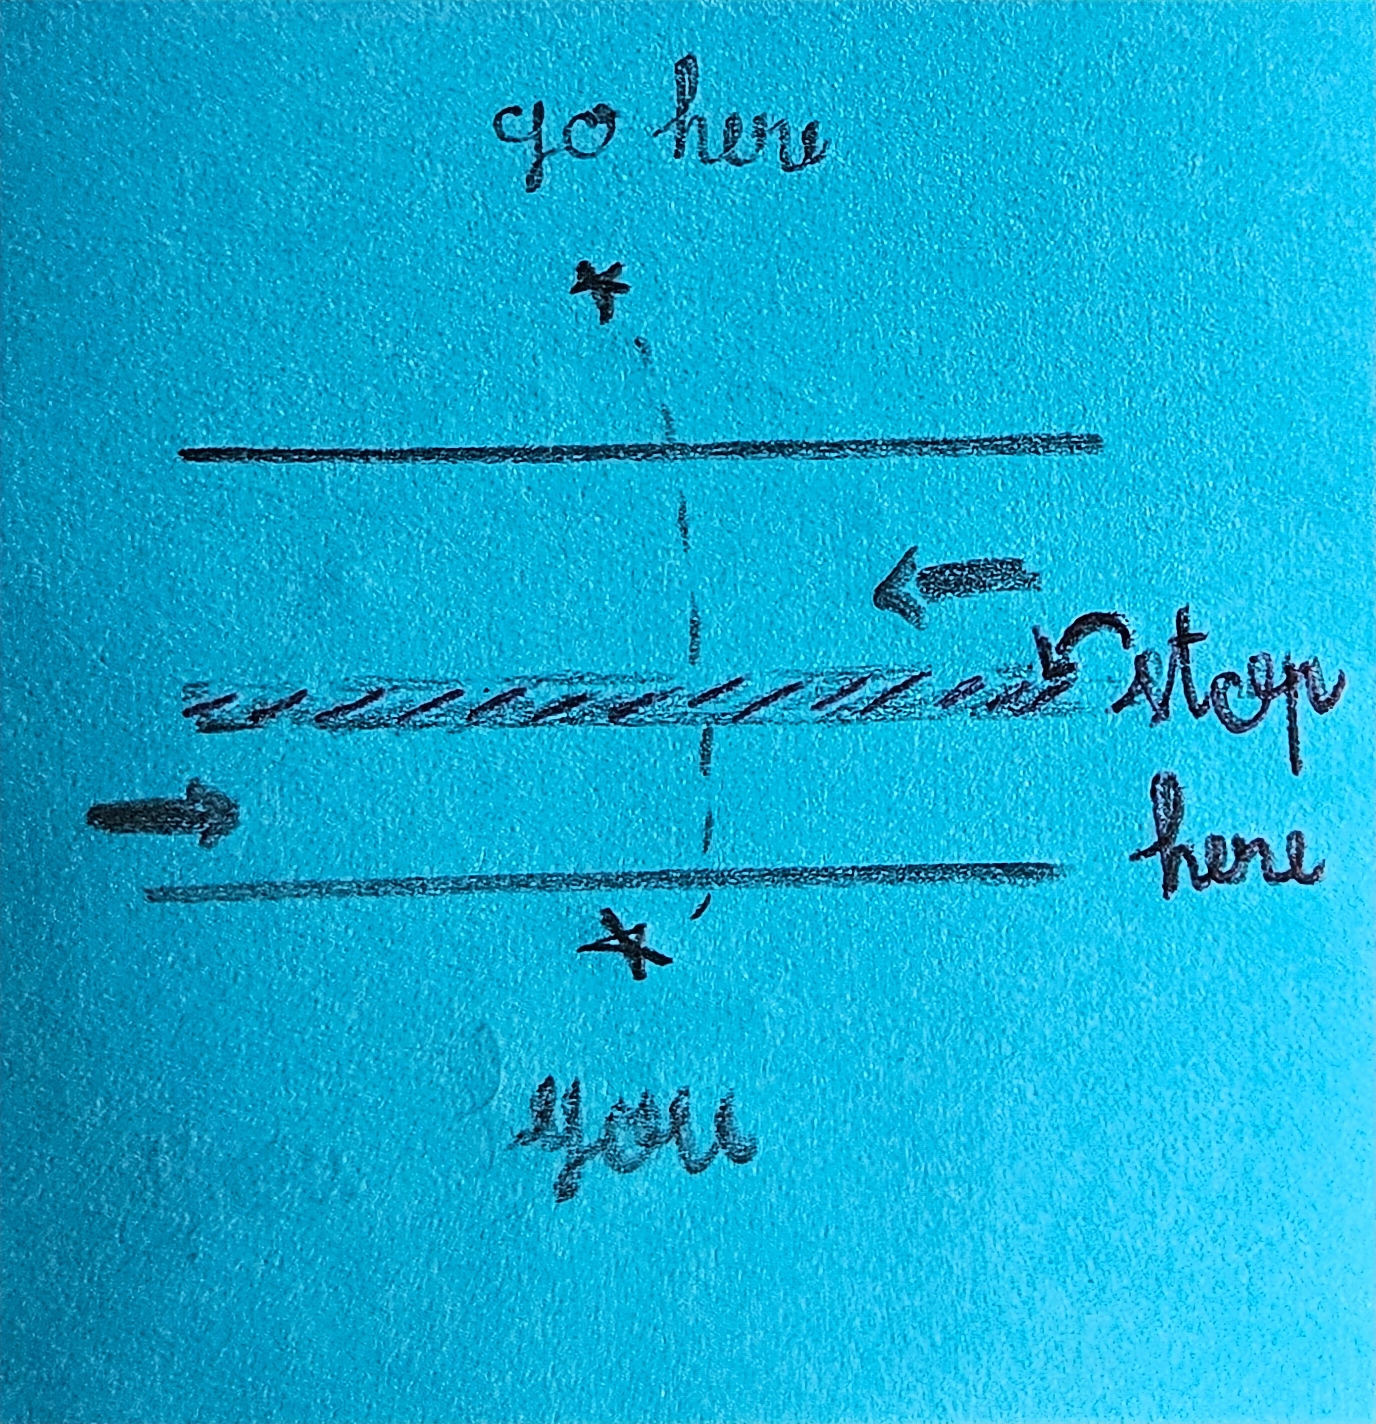 go here
stop
here
you